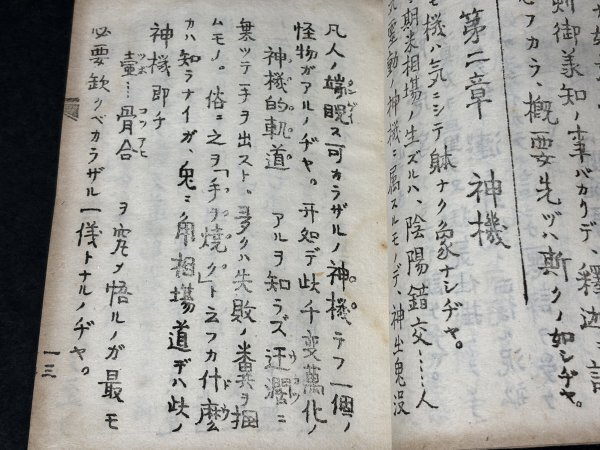 斷御義知ノ事バカリデ、釋迦ニ説
モフカラ、概要先ヅハ斯クノ如シヂヤ。
第二章 神機
機ハ気ニシテ躰ナク象ナシヂヤ。
期米相場ノ生ズルハ、陰陽錯交……人
重動ノ神機ニ属スルモノデ、神出鬼没
凡人ノ端睨ス可カラザルノ神機テフ一個ノ
怪物ガアルノヂヤ。所如デ此千変萬化ノ
神機的軌道 アルヲ知ラズ迂濶ニ
手ヲ出スト。多クハ失敗ノ糞ヲ掴
ムモノ。俗ニ之ヲ「手ヲ焼ク」ト云フカ什麼
カハ知ラナイガ、鬼ニ角相場道デハ此ノ
神機即チ
壷……骨合 ヲ究メ悟ルノガ最モ
必要欽クベカラザル一儀トナルノヂヤ。
一三